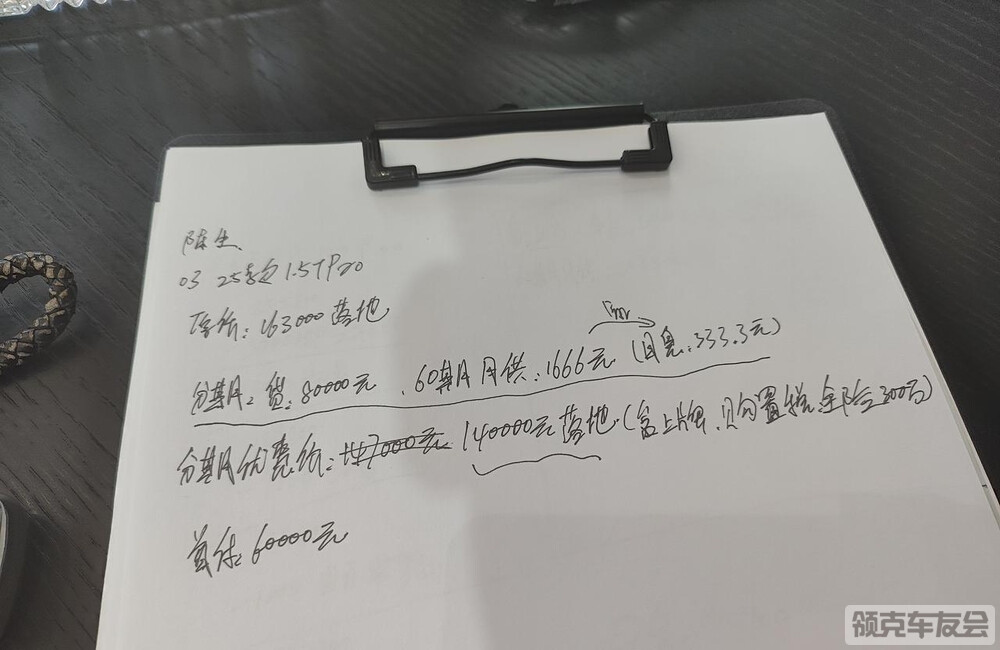 陈生
03 25款 1.5TPro
原价：163000落地
分期：贷：80000元、60期月供：1666元（月息：333.3元）
分期优惠价：147000元 140000元落地（含上牌、购置税、全险300万）
首付：60000元
领克车友会